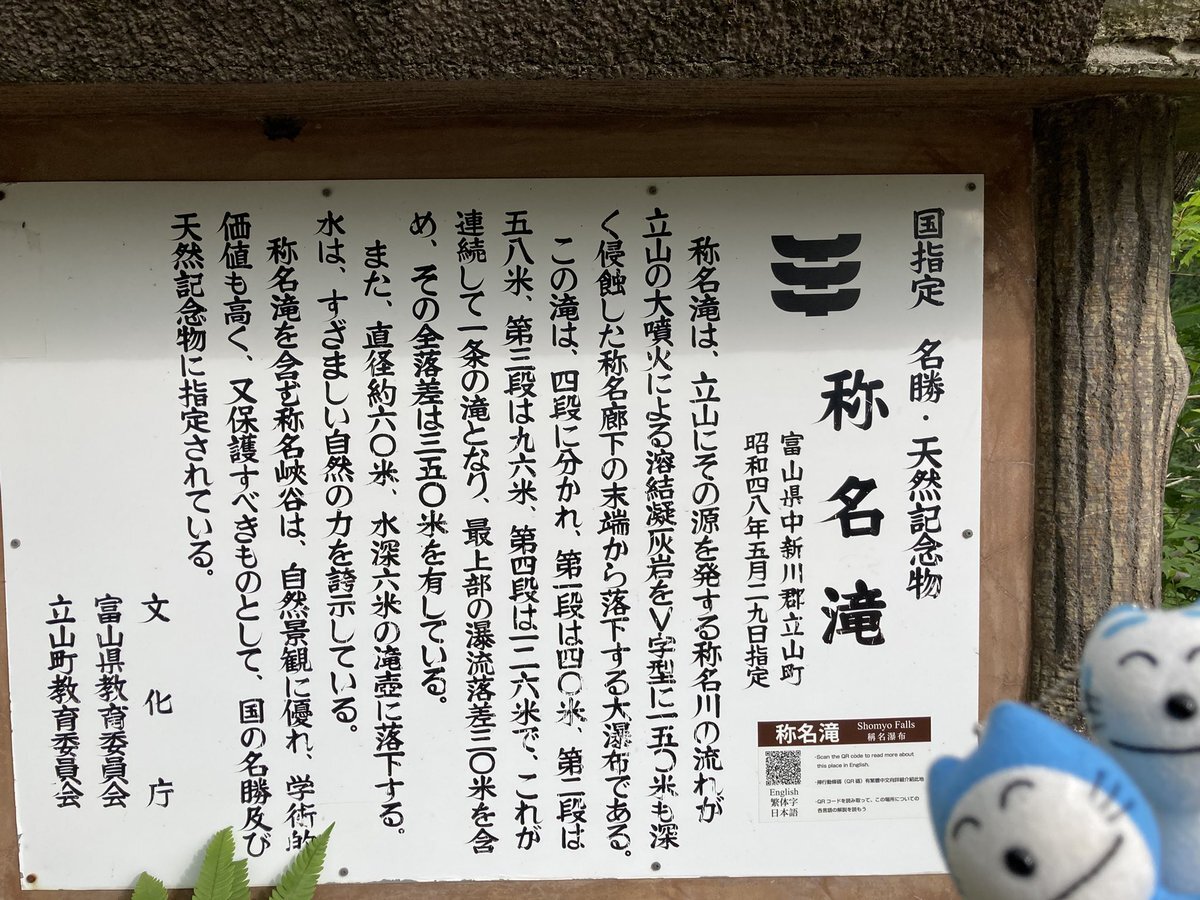 国指定　名勝・天然記念物
称名滝
富山県中新川郡立山町
昭和四八年五月二九日指定
称名滝は、立山にその源を発する称名川の流れが
立山の大噴火による溶結凝灰岩をV字型に一五〇米も深
く侵蝕した称名廊下の末端から落下する大瀑布である。
この滝は、四段に分かれ、第一段は四〇米、第二段は
五八米、第三段は九六米、第四段は一二六米で、これが
連続して一条の滝となり、最上部の瀑流落差三〇米を含
め、その全落差は三五〇米を有している。
また、直径約六〇米、水深六米の滝壺に落下する。
水は、すざましい自然の力を誇示している。
称名滝を含む称名峡谷は、自然景観に優れ、学術的
価値も高く、又保護すべきものとして、国の名勝及び
天然記念物に指定されている。
文化庁
富山県教育委員会
立山町教育委員会
称名滝
Shomyo Falls
稱名瀑布
English
繁体字
日本語
・Scan the QR code to read more about
this place in English.
・QRコードを読み取って、この場所についての
各言語の解説を読もう